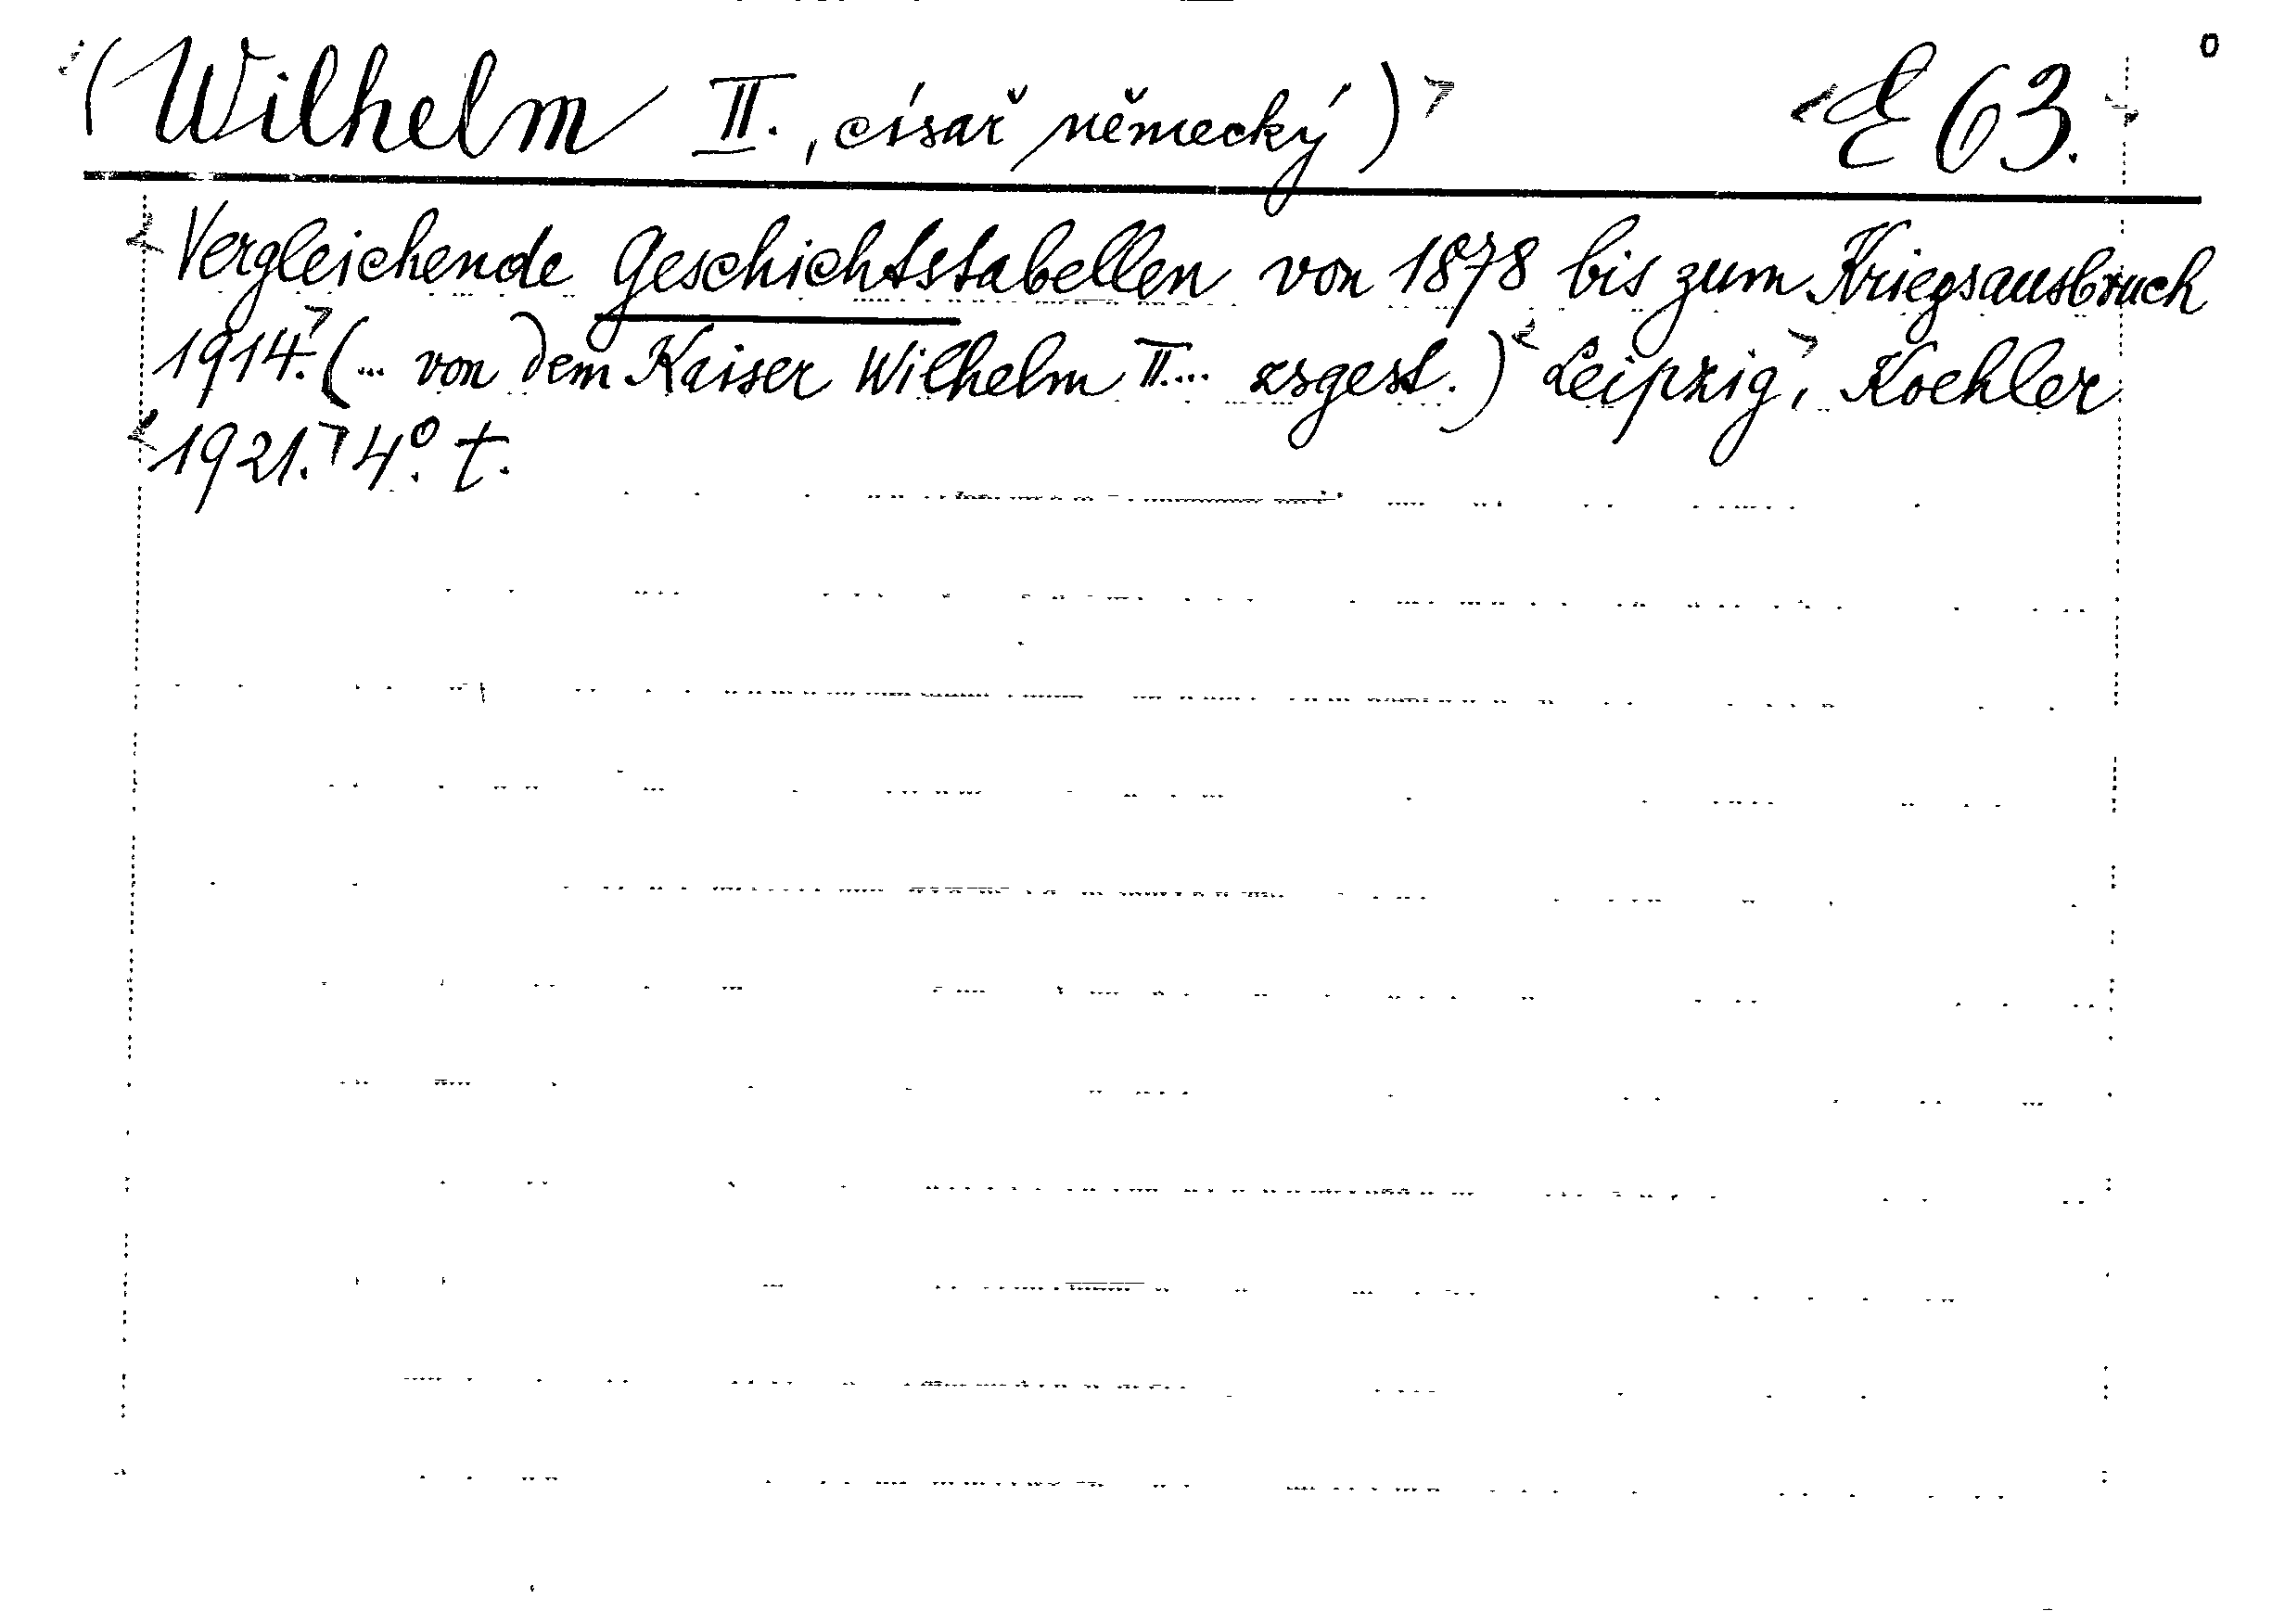 (Wilhelm II., císař německý) E 63.
Vergleichende Geschichtstabellen von 1878 bis zum Kriegsausbruch
1914. (... von dem Kaiser Wilhelm II. ... zsgest.) Leipzig, Koehler
1921. 4°. t.